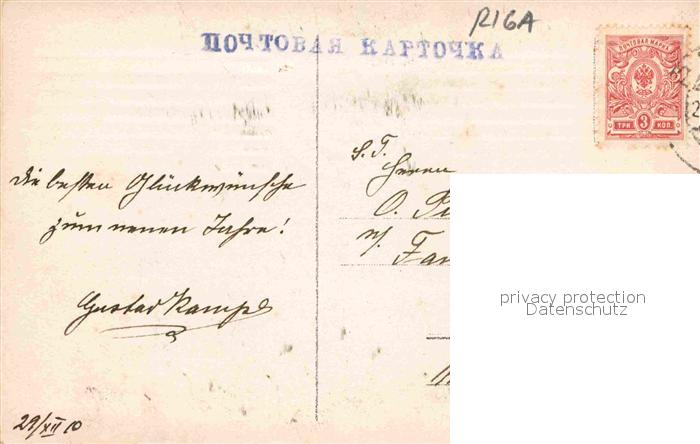 RIGA
ПОЧТОВАЯ КАРТОЧКА
ПОЧТОВАЯ МАРКА
ТРИ 3 КОП.
die besten Glückwünsche
zum neuen Jahre!
Gustav
29/XII 10
S. T.
Herrn
O.
privacy protection
Datenschutz